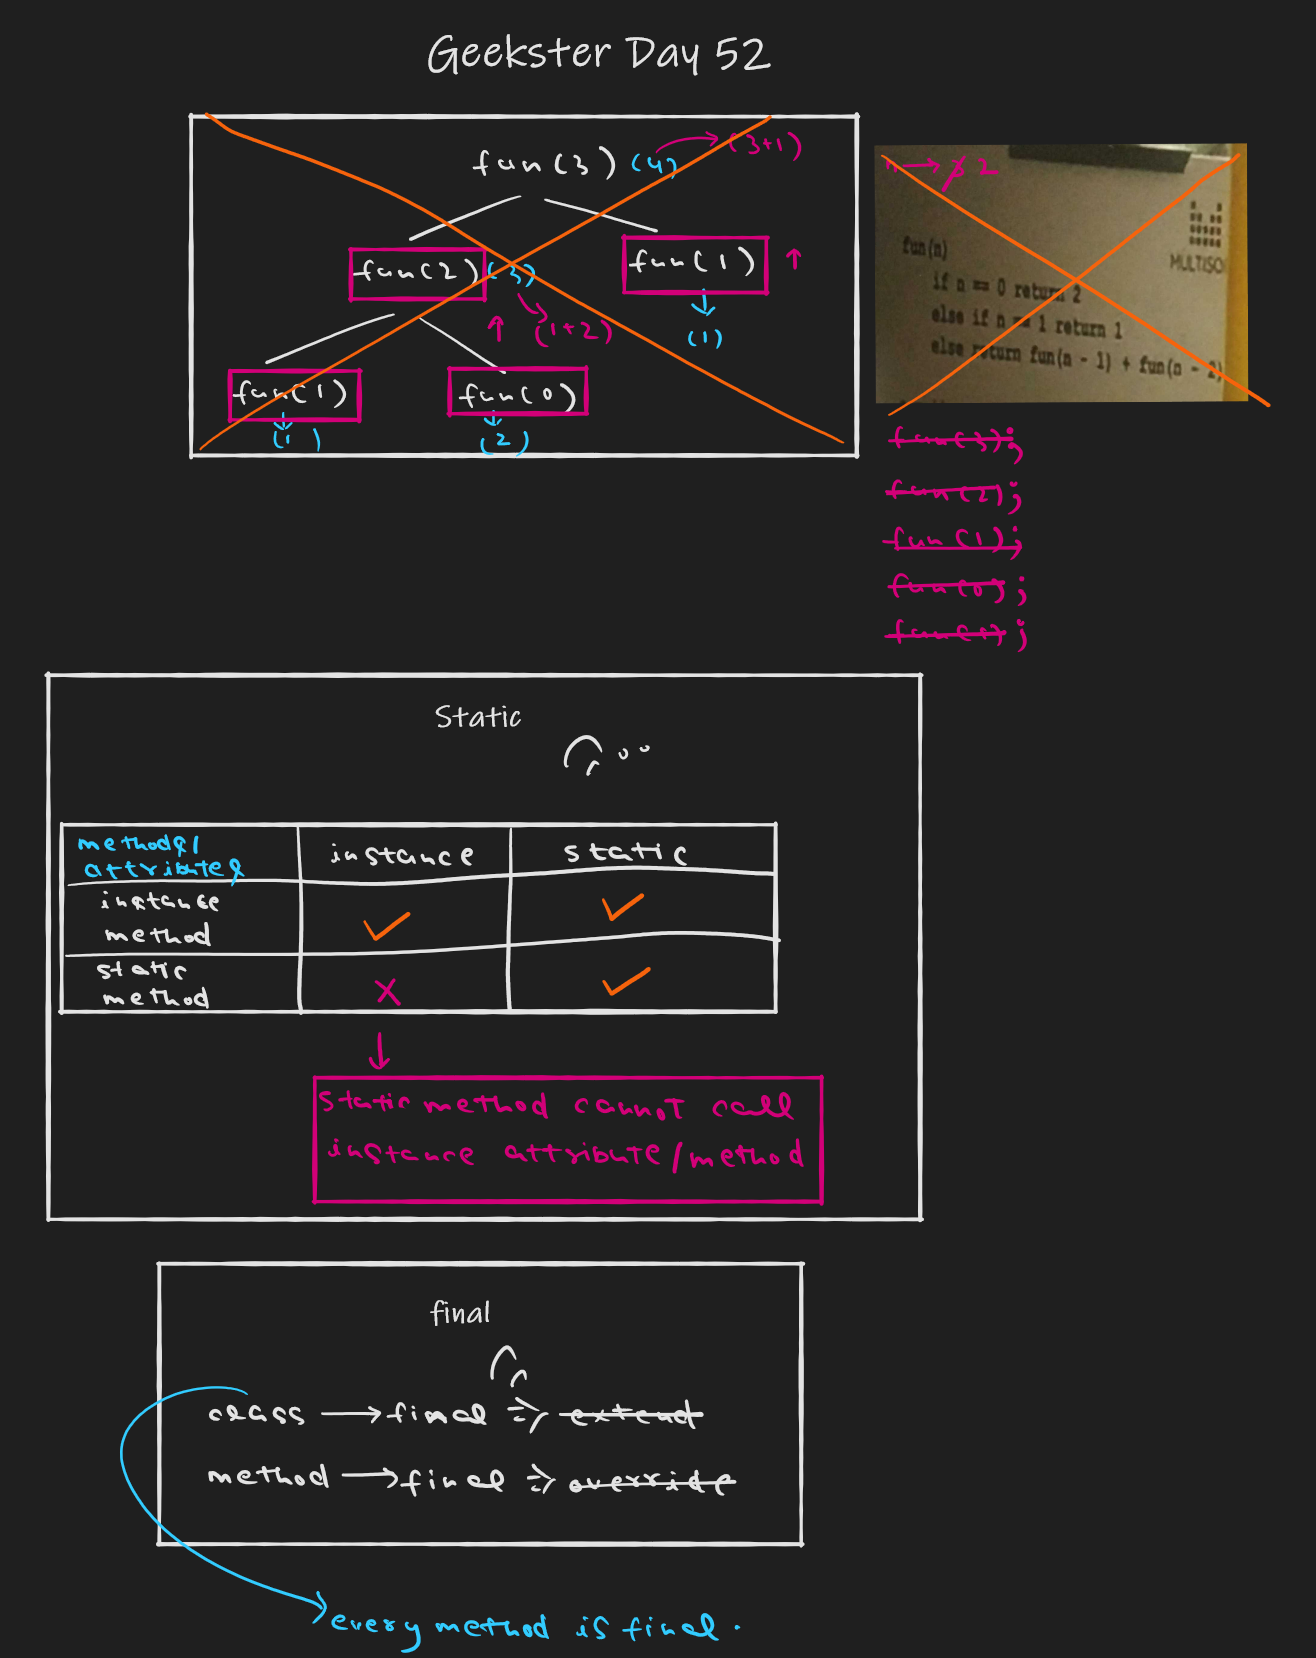 Geekster Day 52
fun(3) (4) (3+1)
fun(2) (3) fun(1)
(1+2) (1)
fun(1) fun(0)
(1) (2)
n → 3 2
fun(n)
if n == 0 return 2
else if n == 1 return 1
else return fun(n - 1) + fun(n - 2)
MULTISO
fun(3);
fun(2);
fun(1);
fun(0);
fun(1);
Static
methods/
attributes
instance
static
instance
method
static
method
static method cannot call
instance attribute/method
final
class → final => extend
method → final => override
every method is final.